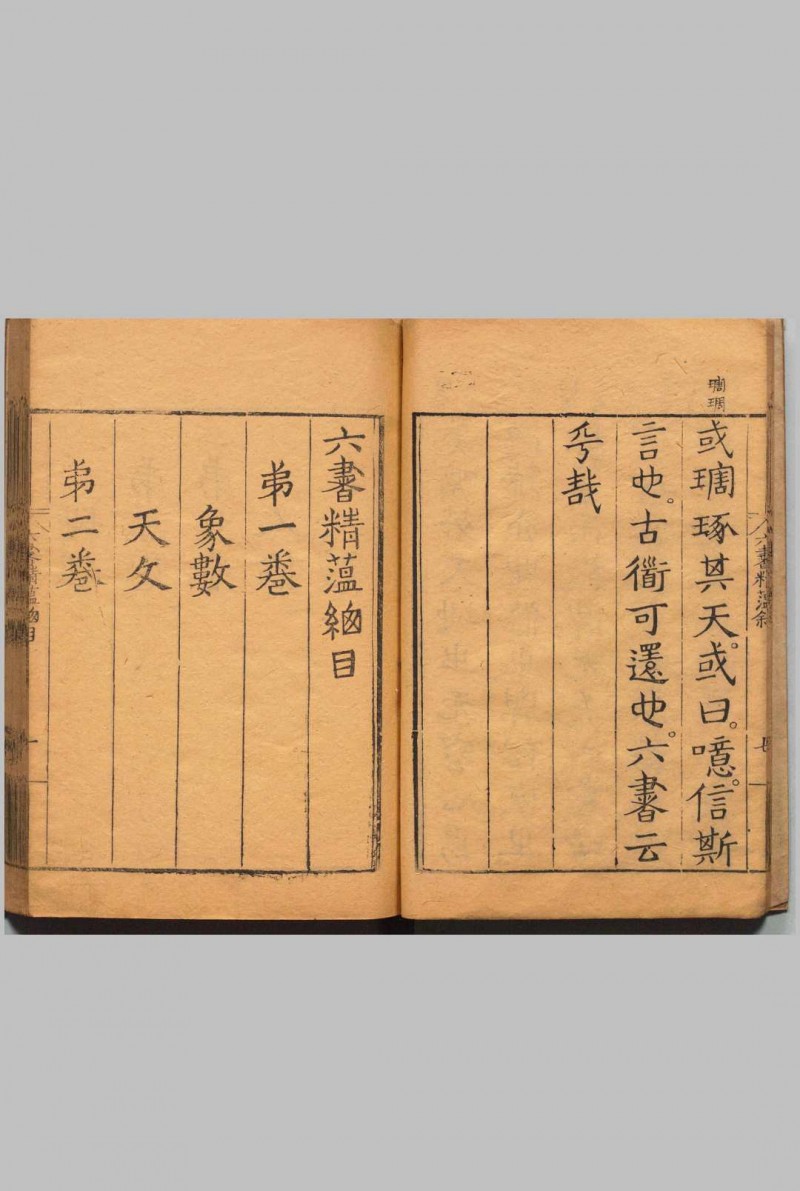 琱琱
或琱琢其天。或曰。噫。信斯
言也。古衟可還也。六書云
乎哉
六書精蘊敘
六書精蘊綱目
弟一卷
象數
天文
弟二卷
六書精蘊綱目
一